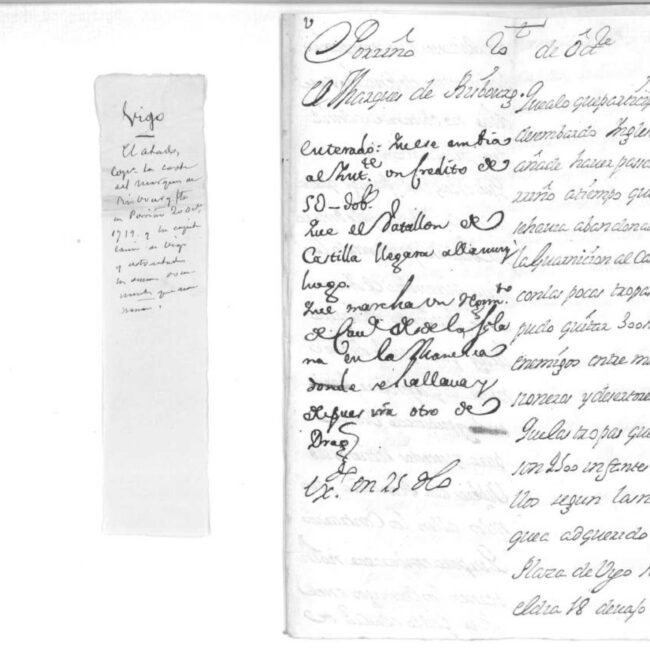 Vigo
El atado,
copr. la carta
del marques de
Risbourg fho
en Porriño 20 Oct.
1719. y la capitu
lacion de Vigo
y
los demas docu
mentos que
v
Porriño 20 de 8.re
El Marques de Risbourg.
enterado: Que se embia
al Int.te un credito de
50 - dob.s
Que el Batallon de
Castilla llegara alla muy
luego.
Que marcha un Regim.to
de Cav.
na en la Manera
donde se hallava y
despues irá otro de
Drag.s
en 25 dho
Que alo que partizip
desembarco Ingles
añade haver pasa
rriño atiempo que
havia abandona
la Guarnicion al Ca
con las pocas tropas
pudo quitar 300
enemigos entre m
rroneros y desertore
Que las tropas que
son 2500 infantes
llos segun las n
que a adquerido
Plaza de Vigo
el dia 18 de